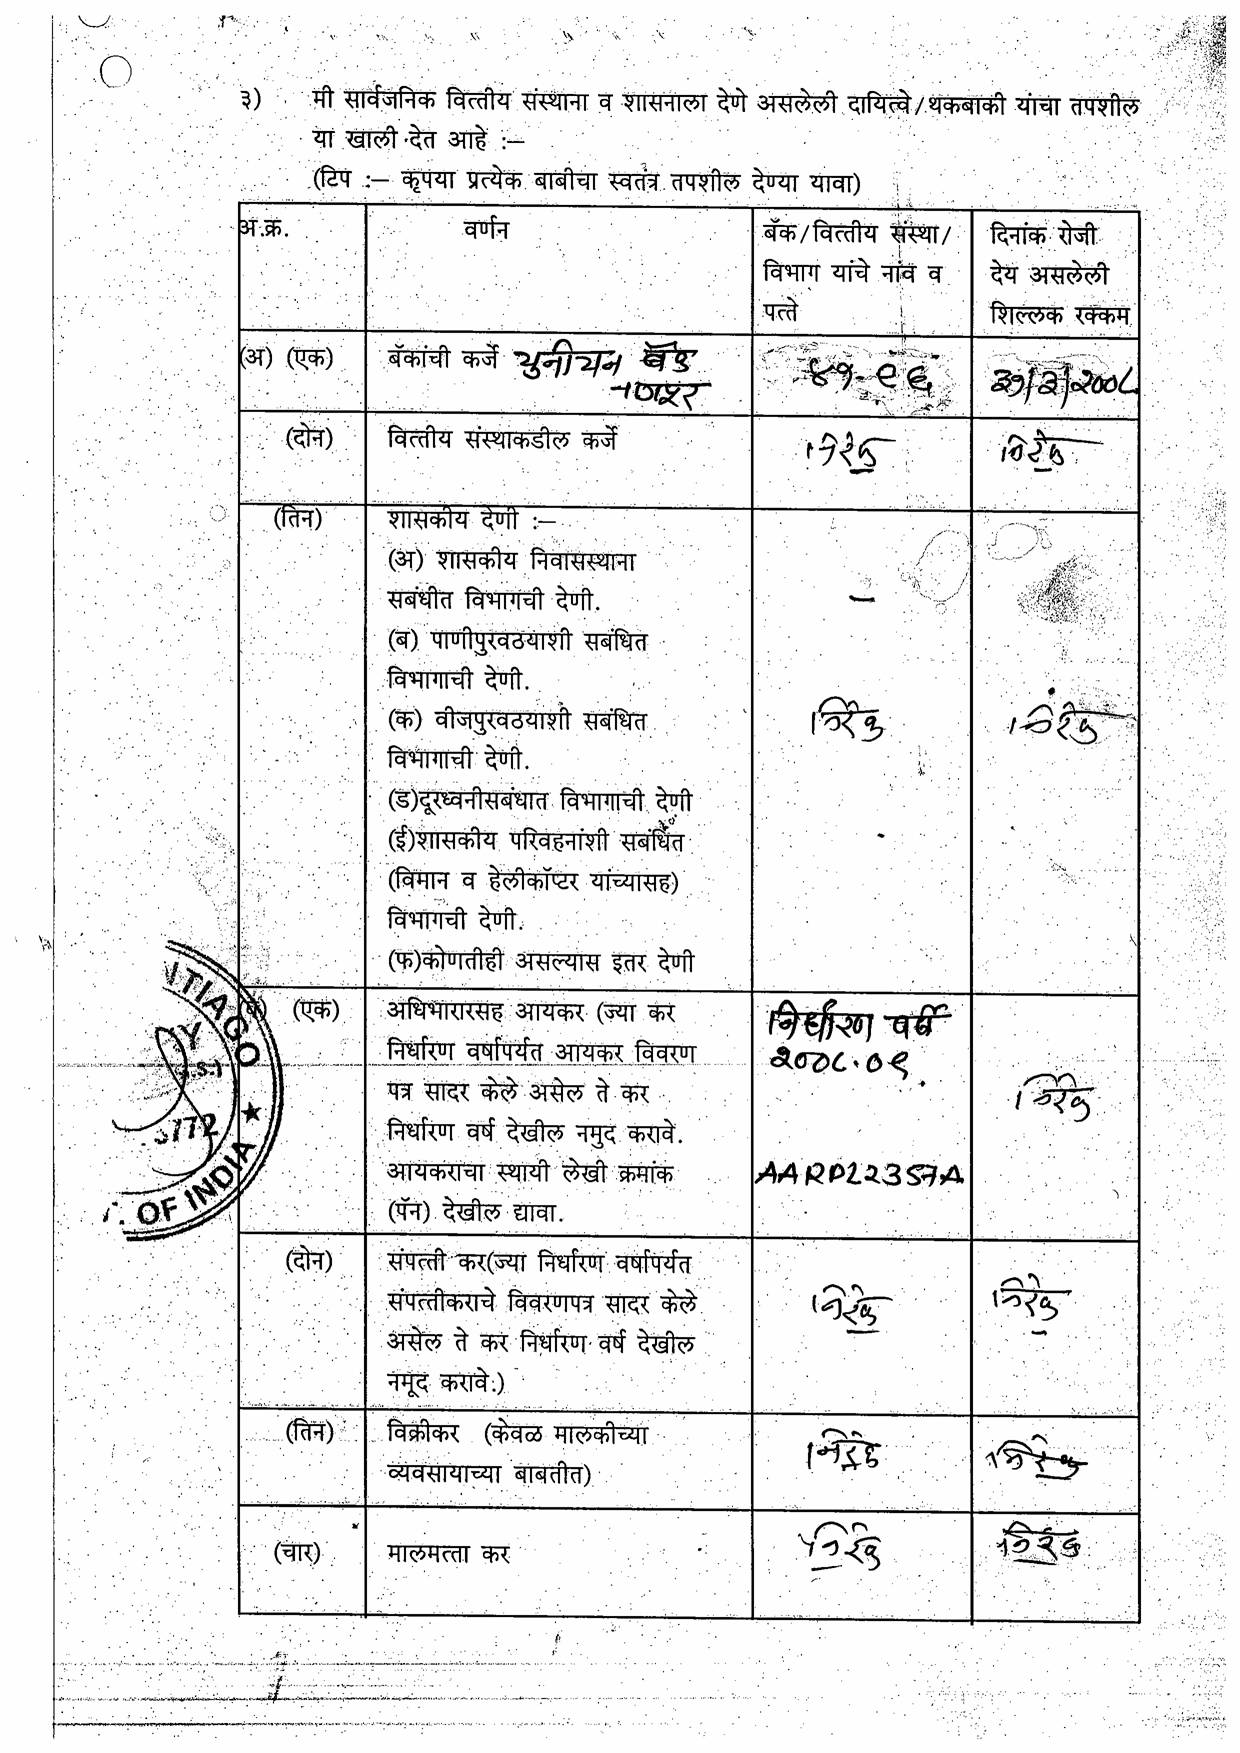 ३) मी सार्वजनिक वित्तीय संस्थाना व शासनाला देणे असलेली दायित्वे/थकबाकी यांचा तपशील
या खाली देत आहे :–
(टिप :– कृपया प्रत्येक बाबीचा स्वतंत्र तपशील देण्या यावा)
अ.क्र. वर्णन बॅक/वित्तीय संस्था/ दिनांक रोजी
विभाग यांचे नांव व देय असलेली
पत्ते शिल्लक रक्कम
(अ) (एक) बॅकांची कर्जे युनीयन बँक ४१.९६ ३१/३/२००८
(दोन) वित्तीय संस्थाकडील कर्जे निरंक निरंक
(तिन) शासकीय देणी :–
(अ) शासकीय निवासस्थाना
सबंधीत विभागची देणी. –
(ब) पाणीपुरवठयाशी सबंधित
विभागाची देणी.
(क) वीजपुरवठयाशी सबंधित निरंक निरंक
विभागाची देणी.
(ड)दूरध्वनीसबंधात विभागाची देणी
(ई)शासकीय परिवहनांशी सबंधित
(विमान व हेलीकॉप्टर यांच्यासह)
विभागची देणी.
(फ)कोणतीही असल्यास इतर देणी
(एक) अधिभारारसह आयकर (ज्या कर निर्धारण वर्ष
निर्धारण वर्षापर्यत आयकर विवरण २००८.०९.
पत्र सादर केले असेल ते कर निरंक
निर्धारण वर्ष देखील नमुद करावे.
आयकराचा स्थायी लेखी क्रमांक AARPL2357A
(पॅन) देखील द्यावा.
(दोन) संपत्ती कर(ज्या निर्धारण वर्षापर्यत
संपत्तीकराचे विवरणपत्र सादर केले निरंक निरंक
असेल ते कर निर्धारण वर्ष देखील
नमूद करावे.)
(तिन) विक्रीकर (केवळ मालकीच्या निरंक निरंक
व्यवसायाच्या बाबतीत)
(चार) मालमत्ता कर निरंक निरंक
NTIAGO
OF INDIA